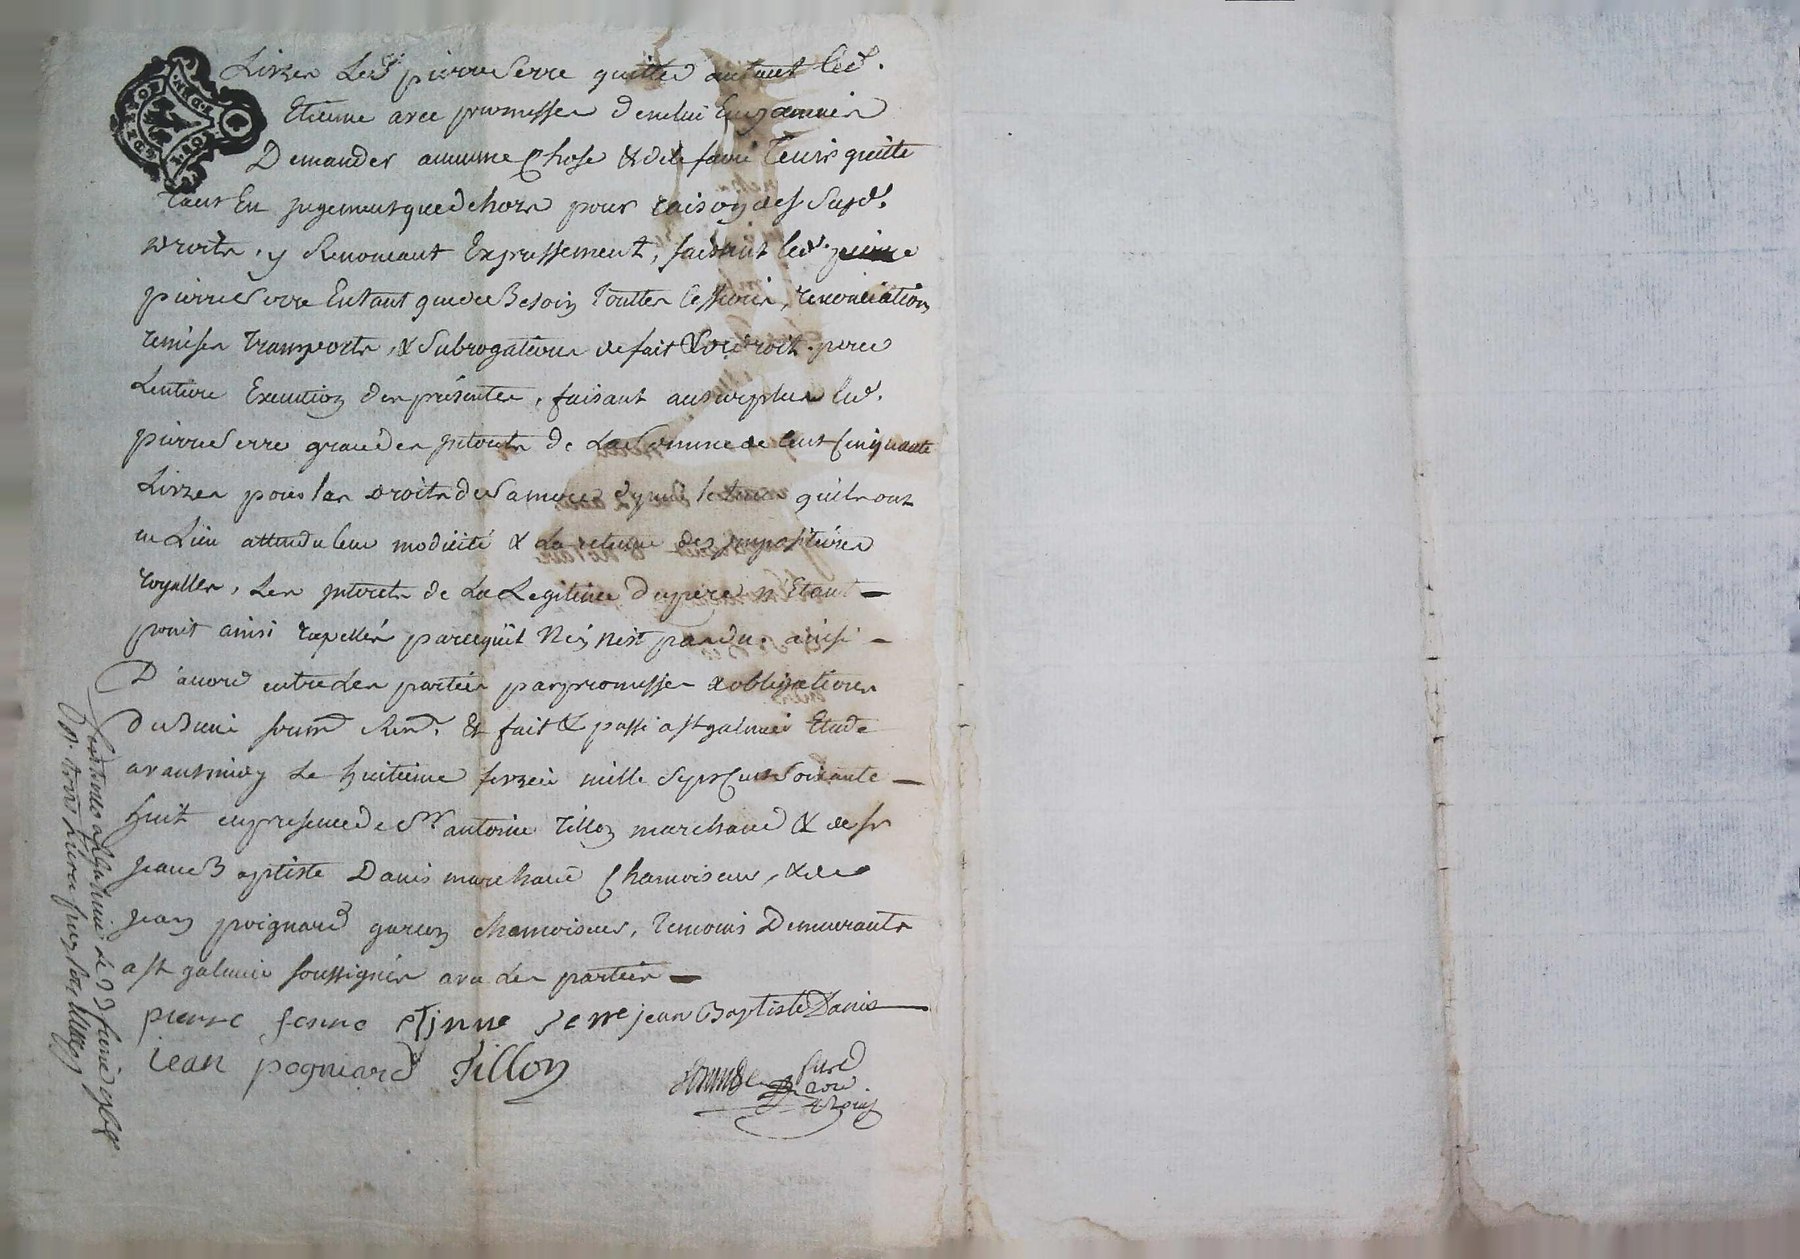 Livres Led. pierre Serre quitte autant led.
Etienne avec promesse de ne lui En jamais
Demander aucune Chose & de le faire tenir quitte
tant En jugement que dehors pour raison des Susd.
Droits, y Renonceant Expressement, faisant led.
pierre Serre En tant que de Besoin touttes cessions, renonciations
remises transports, & Subrogations de fait & de droit. pour
Lentiere Execution des présentes, faisant au surplus led.
pierre Serre grace des jnterets de La Somme de Cent Cinquante
Livres pour les Droits de Sa mere depuis le tems quils ont
eu Lieu attendu leur modicité & La retenue des jmpositions
royalles, Les jnterets de La Legitime du pere n'Etant
point ainsi rapellés parcequ'il N'en n'est pas du. ainsi
D'accord entre Les parties par promesses & obligations
fait & passé a st galmier Etude
avant midy Le huitieme fevrier mille Sept Cent Soixante
huit en presence de Sr antoine tillon marchand & de sr
jean Baptiste Danis marchand Chamoiseur, & de
jean poignard garcon chamoiseur, temoins Demeurants
a st galmier soussignés avec Les parties
pierre serre etienne Serre jean Baptiste Danis
jean pogniard tillon